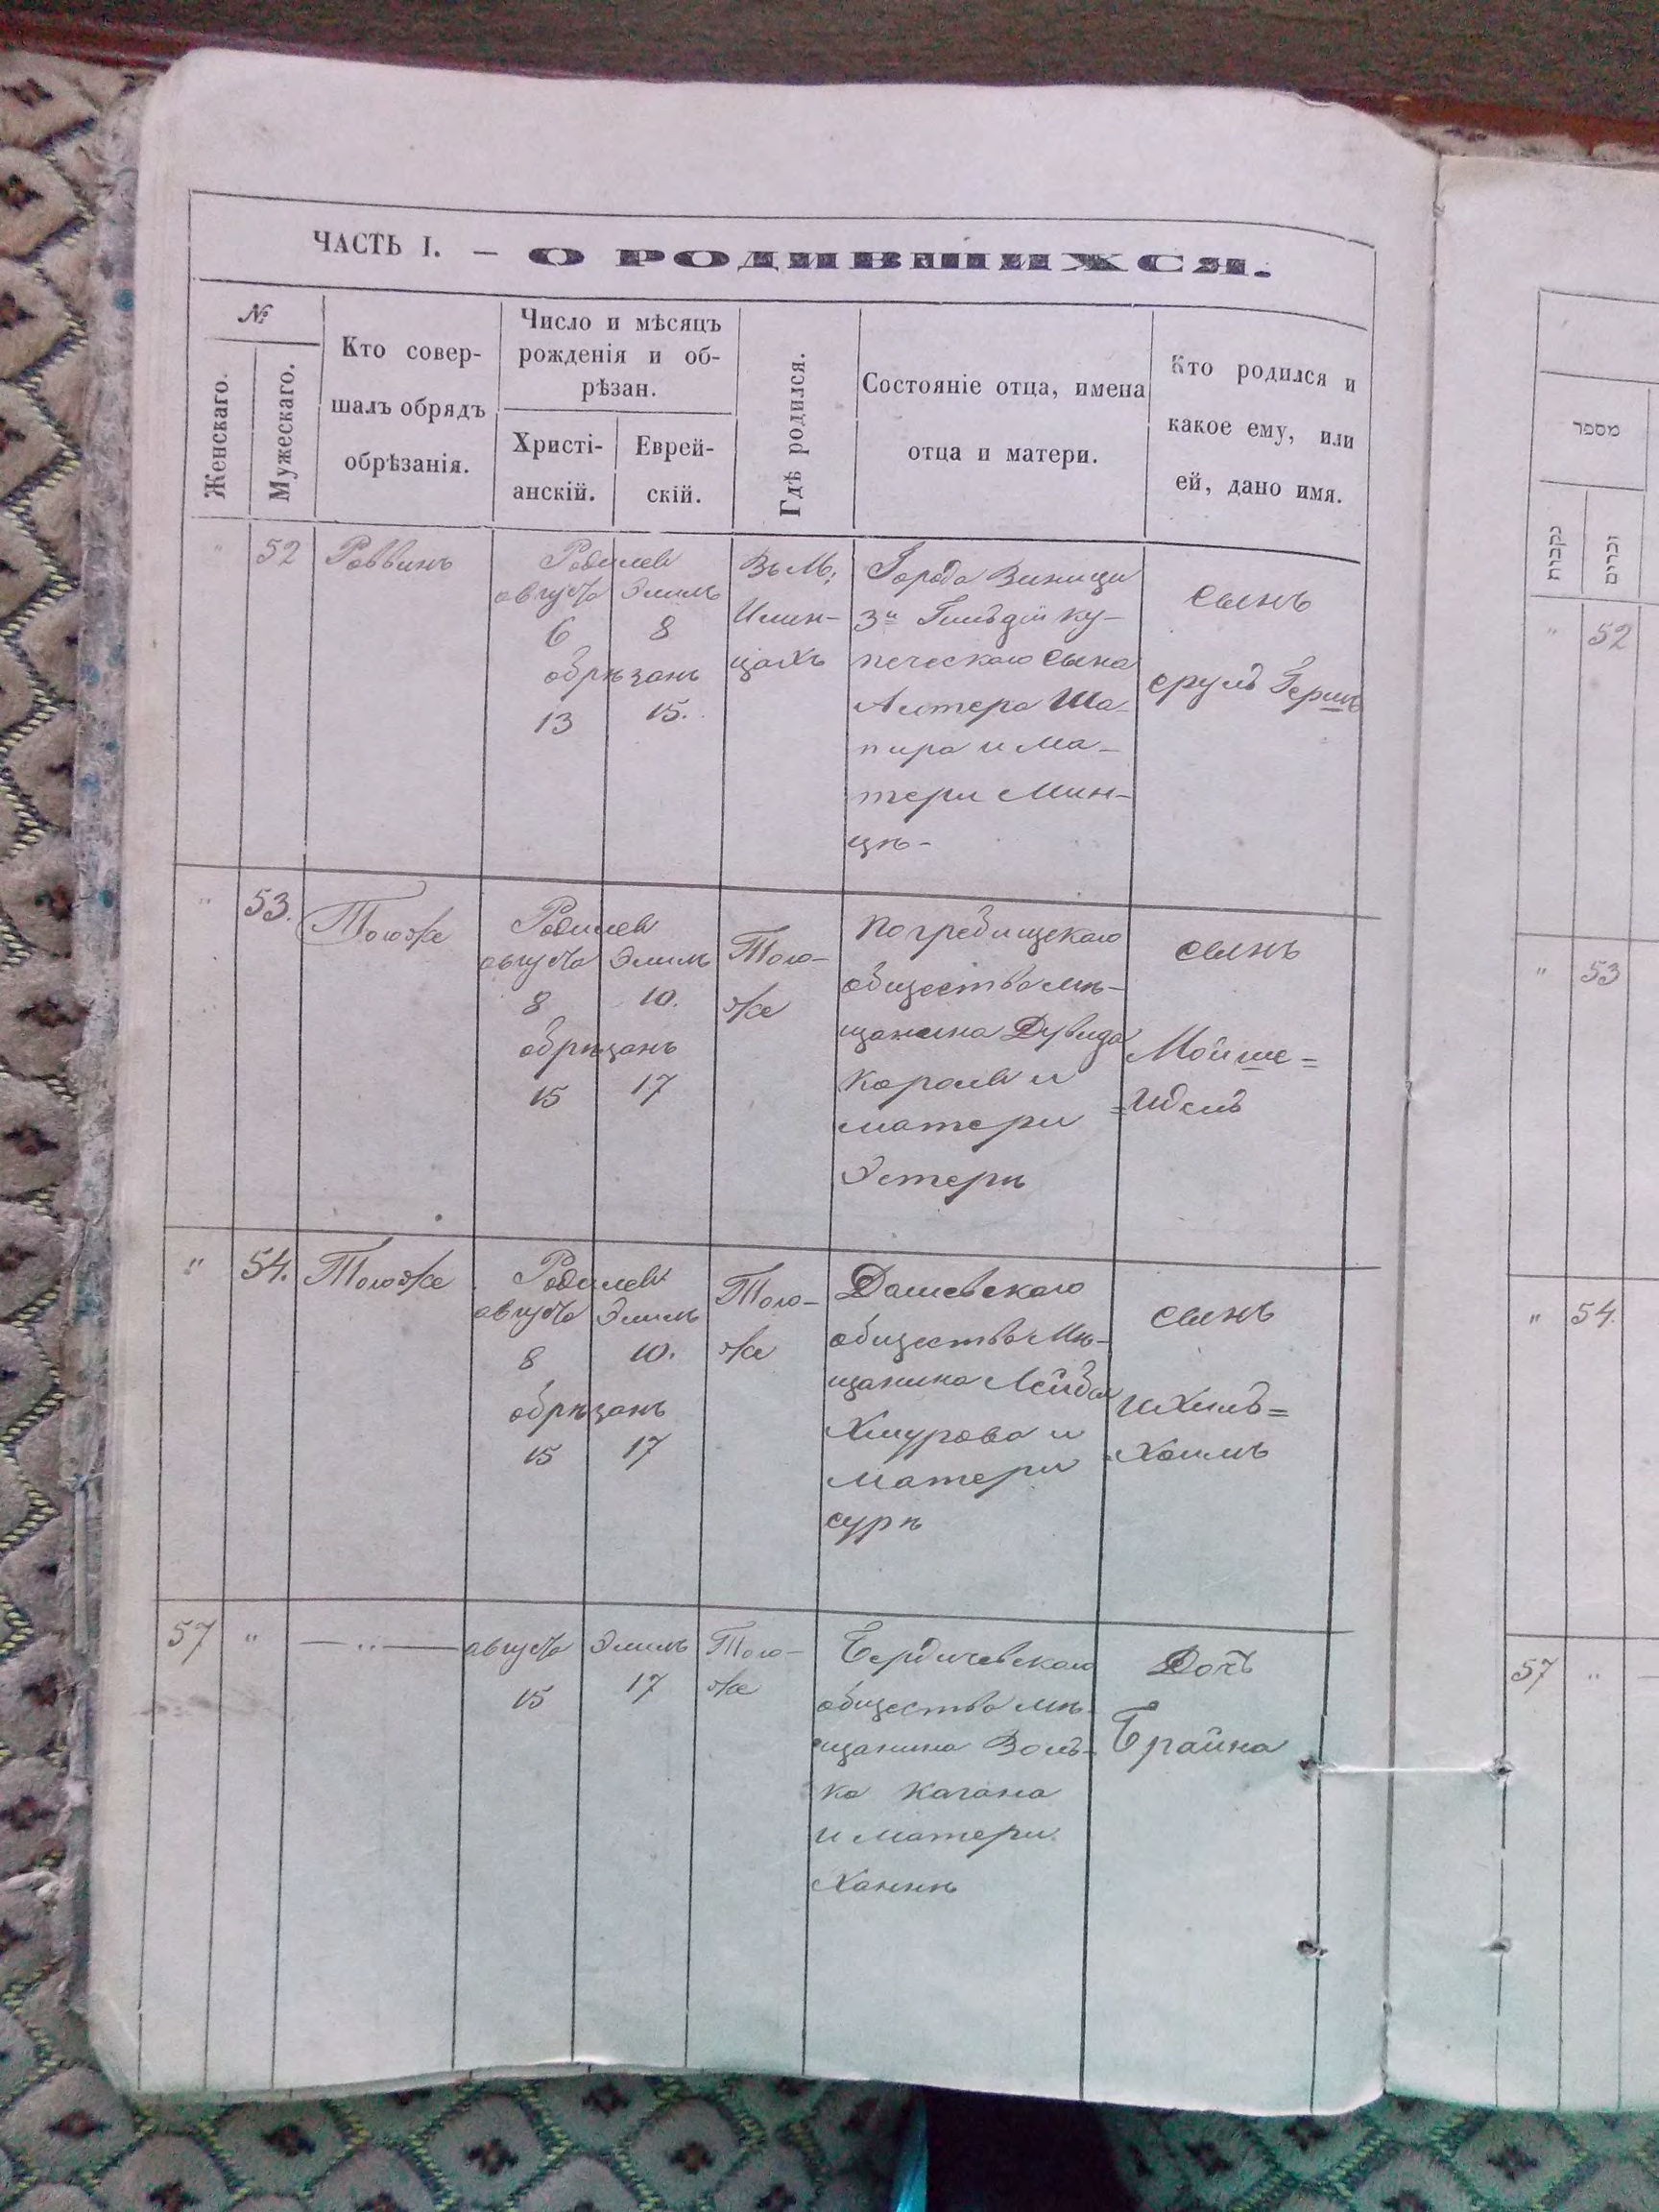 ЧАСТЬ I. — О РОДИВШИХСЯ.
№
Женскаго.
Мужескаго.
Кто совер-
шалъ обрядъ
обрѣзанія.
Число и мѣсяцъ
рожденія и об-
рѣзан.
Христі-
анскій.
Еврей-
скій.
Гдѣ родился.
Состояніе отца, имена
отца и матери.
Кто родился и
какое ему, или
ей, дано имя.
" 52 Раввинъ
Родился
августа Элилъ
6 8
обрѣзанъ
13 15.
Въ М:
Илин-
цахъ
Города Виници
3й Гильдіи ку-
печескаго сына
Алтера Ша-
пира и ма-
тери Мин-
цѣ-
сынъ
сруль Гершъ
" 53. Тотоже
Родился
августа Элилъ
8 10.
обрѣзанъ
15 17
Того-
же
Погребищскаго
общества мѣ-
щанина Дувида
Король и
матери
Эстеры
сынъ
Мойше=
=Идель
" 54. Тотоже
Родился
августа Элилъ
8 10.
обрѣзанъ
15 17
Того-
же
Дашевскаго
общества Мѣ-
щанина Лейбы
Хмурова и
матери
суры
сынъ
ихиль=
Хаимъ
57 " — „ —
августа Элилъ
15 17
Того-
же
Бердичевскаго
общества мѣ-
щанина Воль-
ка Кагана
и матери
Ханны
Дочь
Брайна
מספר
נקבות
זכרים
" 52
" 53
" 54.
57 "